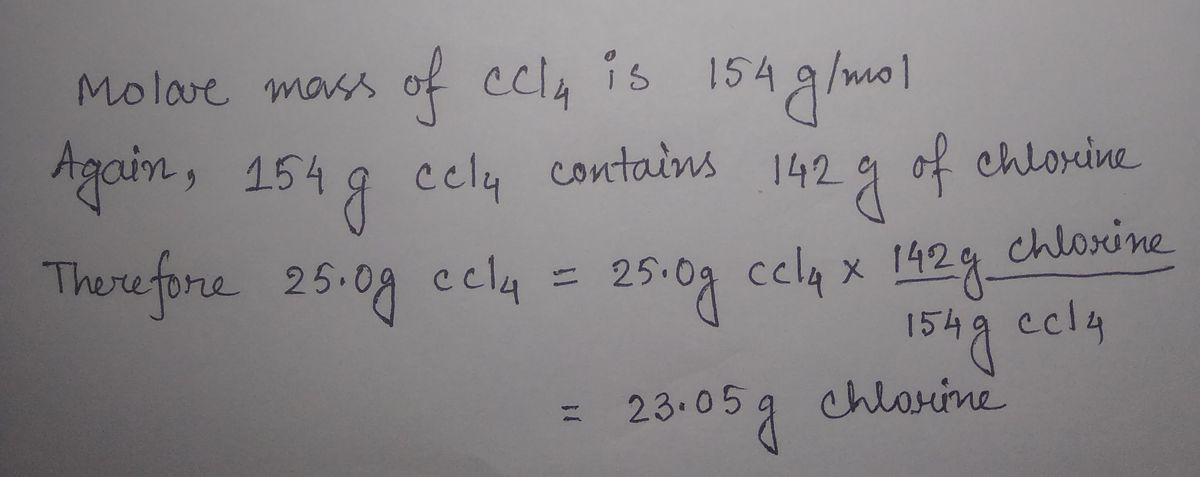 Molare mass of CCl4 is 154 g/mol
Again, 154 g ccl4 contains 142 g of chlorine
Therefore 25.0g ccl4 = 25.0g ccl4 x 142g chlorine
154g ccl4
= 23.05 g chlorine